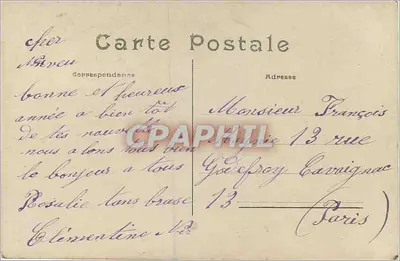 Carte Postale
Correspondance
Adresse
cher
Neveu
bonne et heureux
année a bien tôt
de tes nouvelle
nous alons tous bien
le bonjour a tous
Rosalie tans brase
Clémentine
Monsieur François
13 rue
Godefroy Cavaignac
13
(Paris)
CPAPHIL